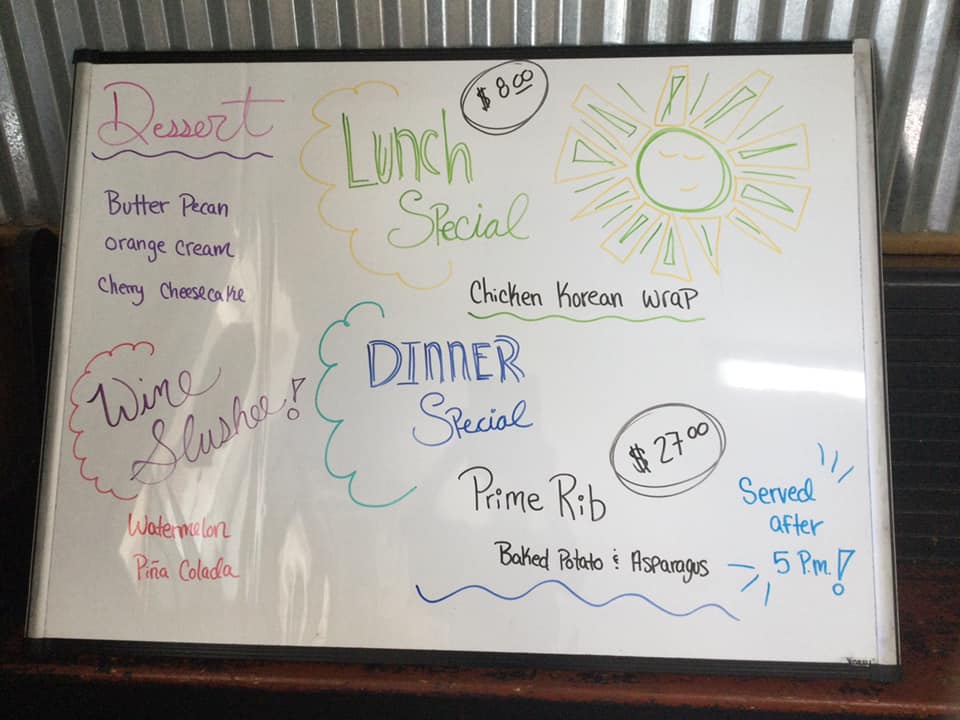 Dessert
Butter Pecan
Orange Cream
Cherry Cheesecake
Wine
Slushee!
Watermelon
Piña Colada
$ 8.00
Lunch
Special
Chicken Korean Wrap
DINNER
Special
$ 27.00
Prime Rib
Baked Potato & Asparagus
Served
after
5 P.m.!